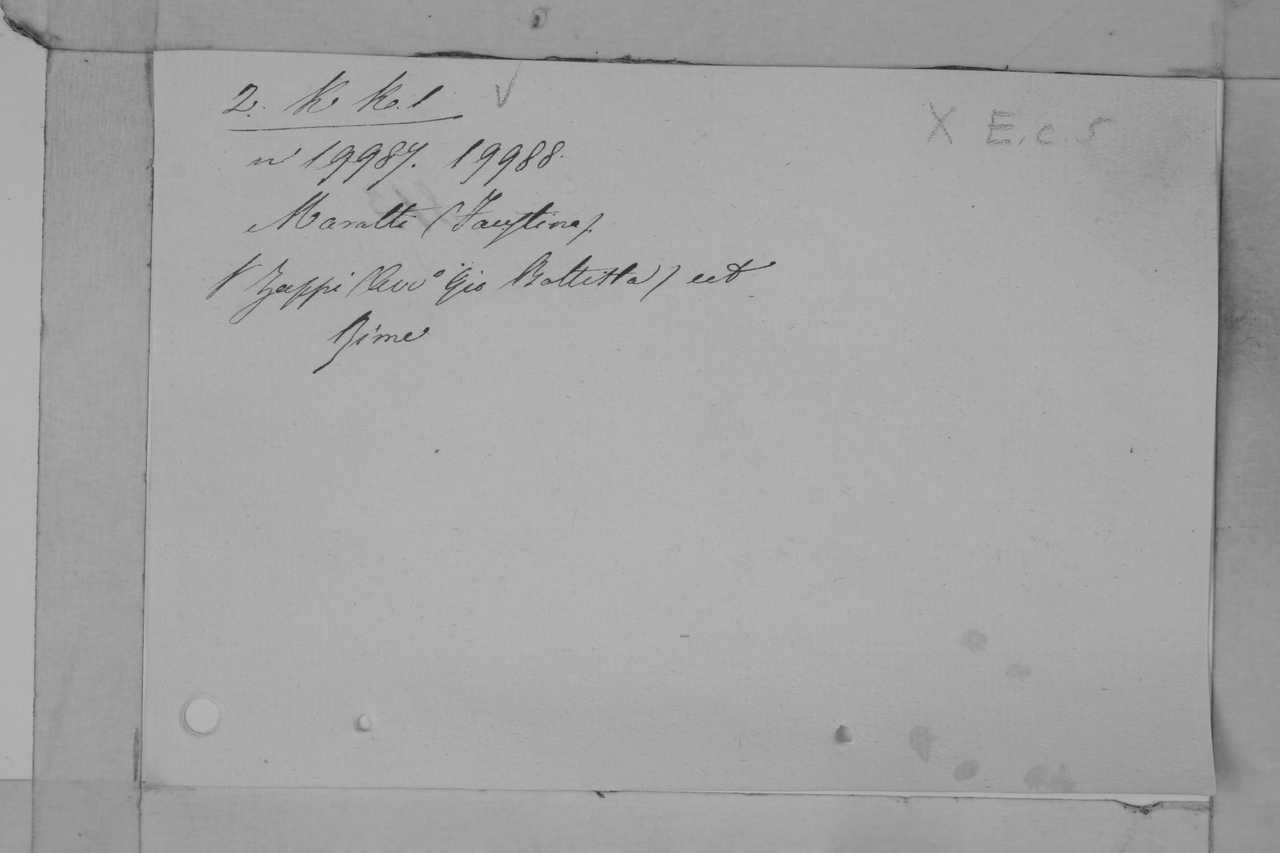 2. K. K. 1 V
X E. C. 5
n 19987. 19988.
Maratti (Faustina).
V Zappi (Avv° Gio Battista) ect
Rime